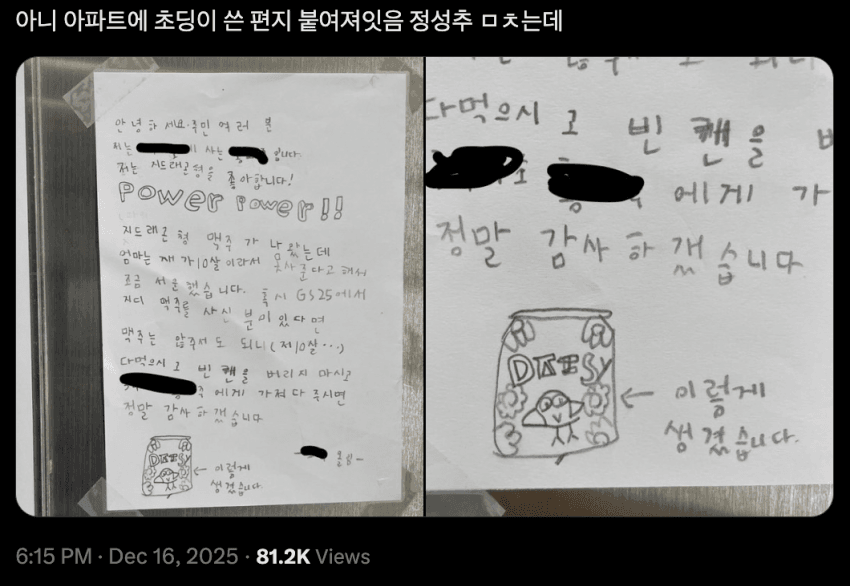 아니 아파트에 초딩이 쓴 편지 붙여져잇음 정성추 ㅁㅊ는데
안녕하세요. 주민 여러분
저는 사는 입니다
저는 지드래곤형을 좋아합니다!
Power Power!!
지드래곤 형 맥주가 나왔는데
엄마는 제가 10살이라서 못사준다고 해서
조금 서운했습니다. 혹시 GS25에서
지디 맥주를 사신 분이 있다면
맥주는 않주셔도 되니 (제10살...)
다먹으시고 빈 캔을 버리지 마시고
에게 가져다 주시면
정말 감사하겠습니다
DAISY
← 이렇게
생겼습니다.
올림-
다먹으시고 빈 캔을 버
에게 가
정말 감사하겠습니다
DAISY
← 이렇게
생겼습니다.
6:15 PM · Dec 16, 2025 · 81.2K Views